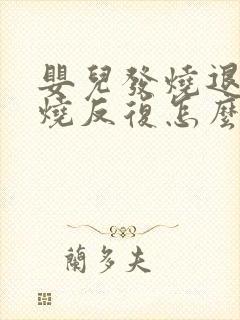 嬰兒發燒退
燒反復怎麼
蘭多夫